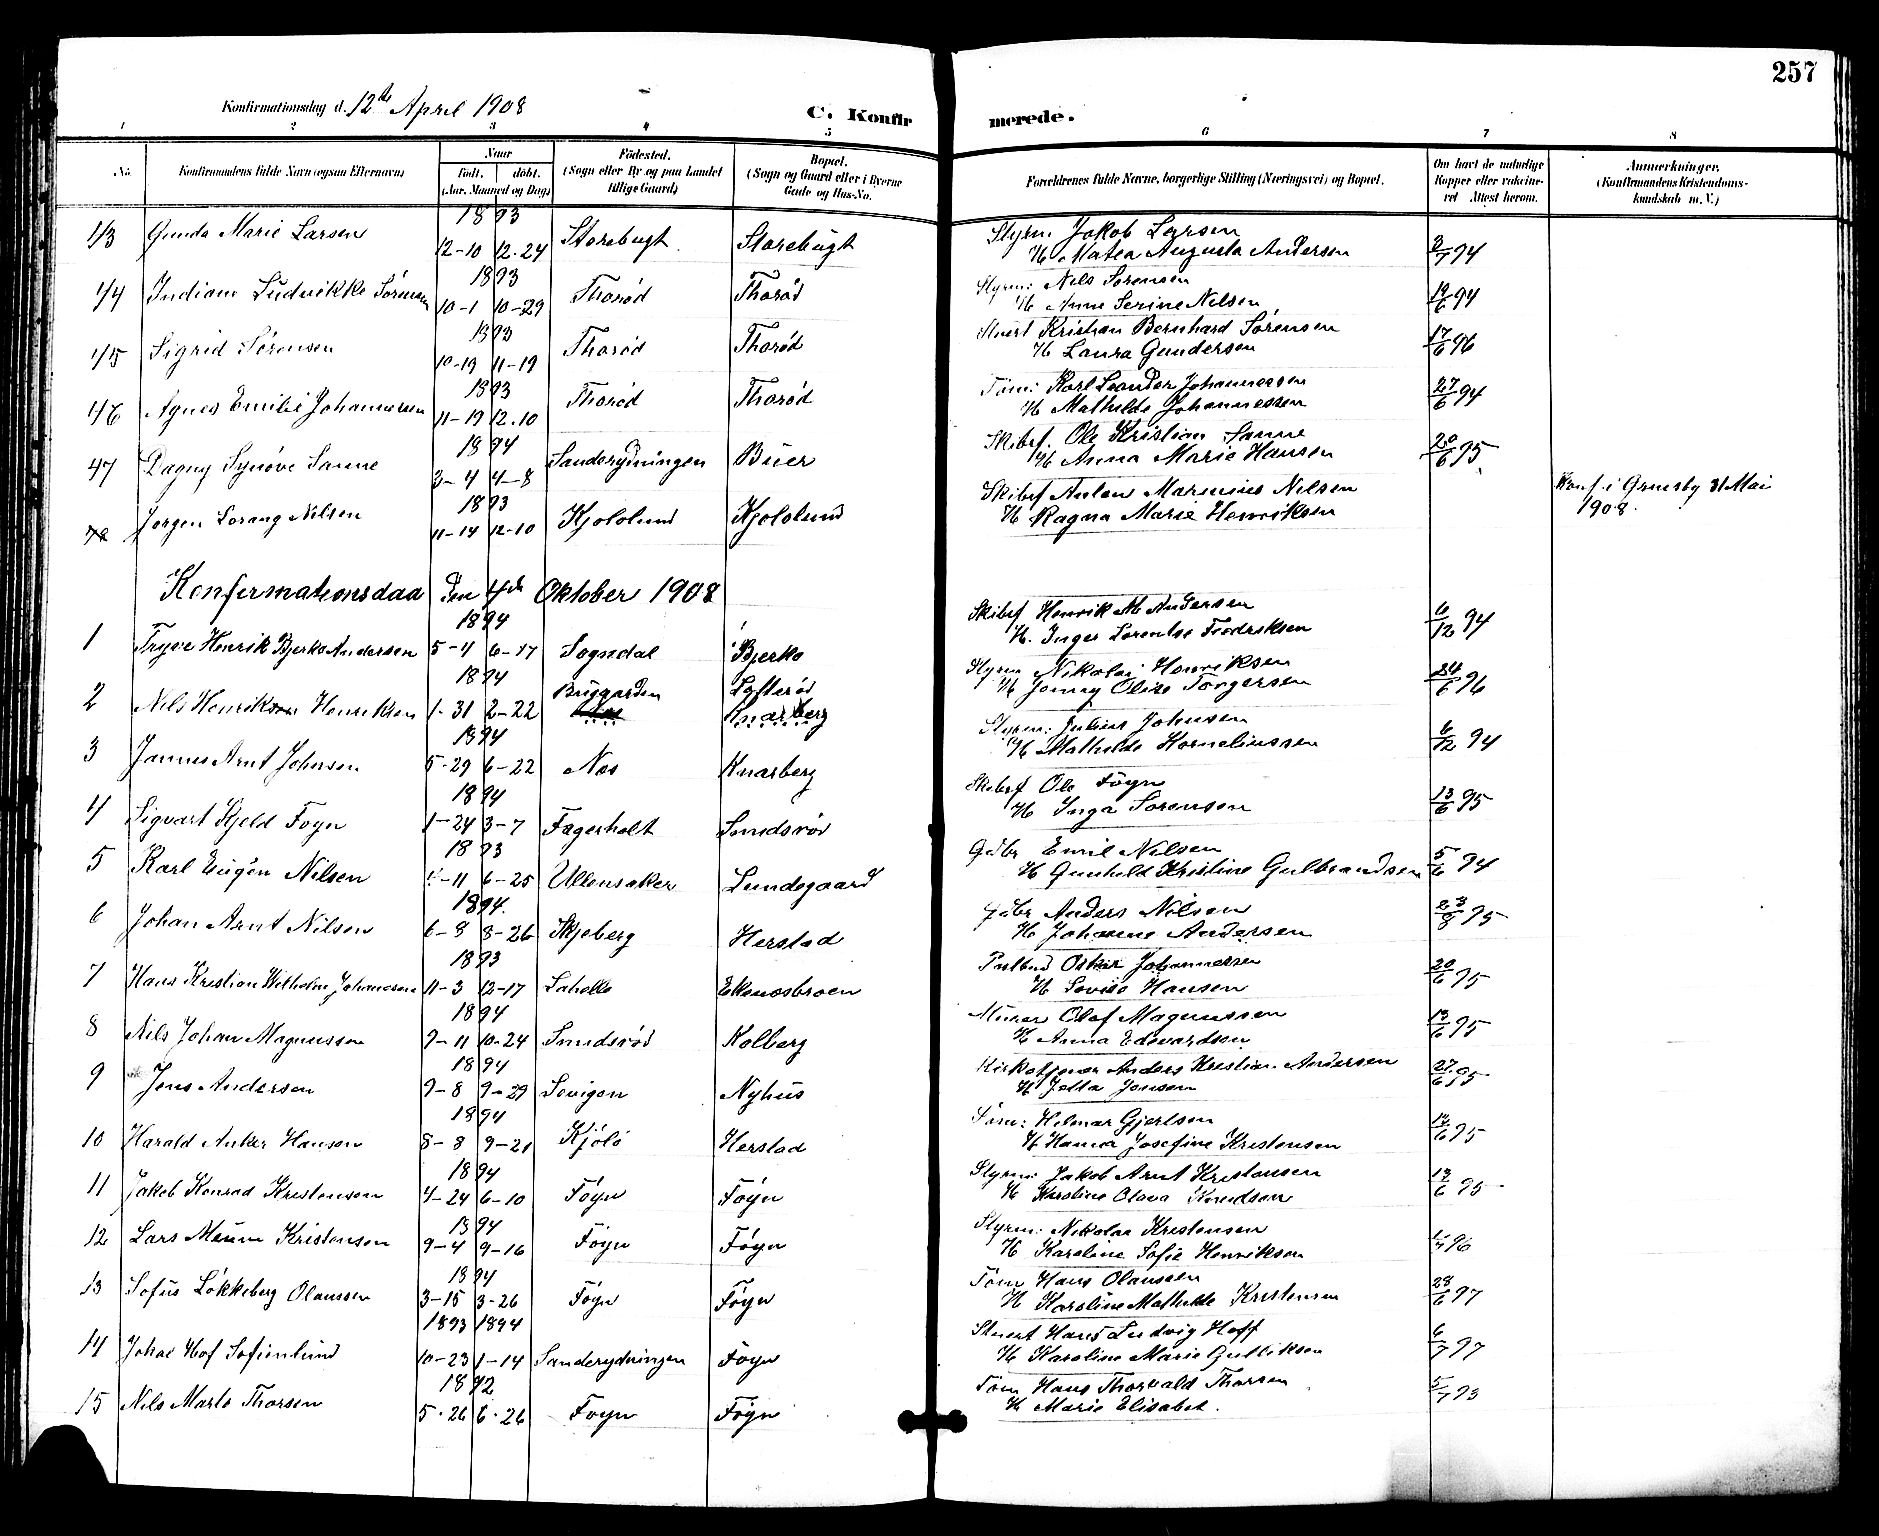 257
Konfirmationsdag d. 12te April 1908
C. Konfirmerede.
1 2 3 4 5 6 7 8
No. Konfirmandens fulde Navn (ogsaa Efternavn) Naar født. døbt. (Aar, Maaned og Dag) Fødested. (Sogn eller By og paa Landet tillige Gaard) Bopæl. (Sogn og Gaard eller i Byerne Gade og Hus-No. Forældrenes fulde Navne, borgerlige Stilling (Næringsvei) og Bopæl. Om havt de naturlige Kopper eller vaccineret Attest herom. Anmerkninger. (Konfirmandens Kristendomskundskab m. V.)
43 Gunda Marie Larsen 1893 12-10 12-24 Storebugt Storebugt Styrm. Jakob Larsen 3/7 94
H. Matea Augusta Andersen
44 Indiane Ludvikke Sörensen 1893 10-1 10-29 Thorød Thorød Styrm: Nils Sorensen 19/6 94
H. Anne Serine Nilsen
45 Sigrid Sørensen 1893 10-19 11-19 Thorød Thorød Stuert Kristian Bernhard Sørensen 17/6 96
H. Laura Gundersen
46 Agnes Emilie Johannessen 1893 11-19 12.10 Thorød Thorød Töm: Karl Leander Johannessen 27/6 94
H. Mathilde Johannessen
47 Dagny Synöve Sanne 1894 3-4 4-8 Sanderydningen Buer Skibsf. Ole Kristian Sanne 20/6 95
H. Anna Marie Hansen
48 Jorgen Lorang Nilsen 1893 11-14 12-10 Kjololund Kjololund Skibsf Anton Marinius Nilsen Konf. i Grimsby 31 Mai
H. Ragna Marie Henriksen 1908.
Konfirmationsdaa den 4de Oktober 1908
1 Tryve Henrik Bjerko Andersen 1894 5-4 6-17 Sogndal Bjerko Skibsf Henrik M Andersen 6/12 94
H. Inger Lorentse Fredriksen
2 Nils Henrikson Henriksen 1894 1-31 2-22 Bruggarden Lofterød Knarberg Styrm Nikolai Henriksen 24/6 96
H. Jenny Olise Torgersen
3 Jannes Arnt Johnsen 1894 5-29 6-22 Nes Knarberg Styrm: Julius Johnsen 6/12 94
H. Mathilde Korneliussen
4 Sigvart Kjeld Foyn 1894 1-24 3-7 Fagerholt Smidsrød Skibsf Ole Foyn 13/6 95
H. Inga Sorensen
5 Karl Eugen Nilsen 1893 4-11 6-25 Ullensaker Lundegaard Gdbr Emil Nilsen 5/6 94
H Gunhild Kristine Gulbrandsen
6 Johan Arnt Nilsen 1894. 6-8 8-26 Skjeberg Herstad Gdbr Anders Nilsen 23/8 95
H. Johanne Andersen
7 Hans Kristian Wilhelm Johansen 1893 11-3 12-17 Lahelle Ekenesbroen Postbud Oskar Johannessen 20/6 95
H Lovise Hansen
8 Nils Johan Magnussen 1894 9-11 10-24 Smidsrød Kolberg Murer Olaf Magnussen 13/6 95
H. Anna Edevardsen
9 Jens Andersen 1894 9-8 9-29 Lovigen Nyhus Kirketjener Anders Kristian Andersen 27/6 95
H Jetta Jensen
10 Harald Anker Hansen 1894 8-8 9-21 Kjölö Herstad Töm: Hilmar Gjertsen 12/6 95
H Hanna Josefine Kristensen
11 Jakob Konrad Kristensen 1894 4-24 6-10 Föyn Föyn Styrm: Jakob Arnt Kristensen 12/6 95
H Karoline Olava Knudsen
12 Lars Kristensen 1894 9-4 9-16 Föyn Föyn Styrm: Nikolai Kristensen 1/7 96
H Karoline Sofie Henriksen
13 Sofus Lökkeberg Olaussen 1894 3-15 3-26 Föyn Föyn Töm Hans Olaussen 28/6 97
H Karoline Mathilde Kristensen
14 Johan Hof Sofienlund 1893 1894 10-23 1-14 Sanderydningen Foyn Stuert Hans Ludvig Hoff 6/7 97
H Karoline Marie Gulliksen
15 Nils Thorsen 1892 5-26 6-26 Foyn Föyn Töm Hans Thorvald Thorsen 5/7 93
H Marie Elisabet.